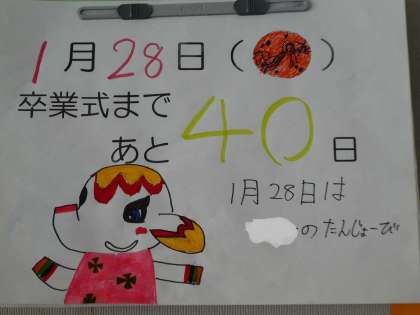 1月28日( )
卒業式まで
あと 40 日
1月28日は
のたんじょーび